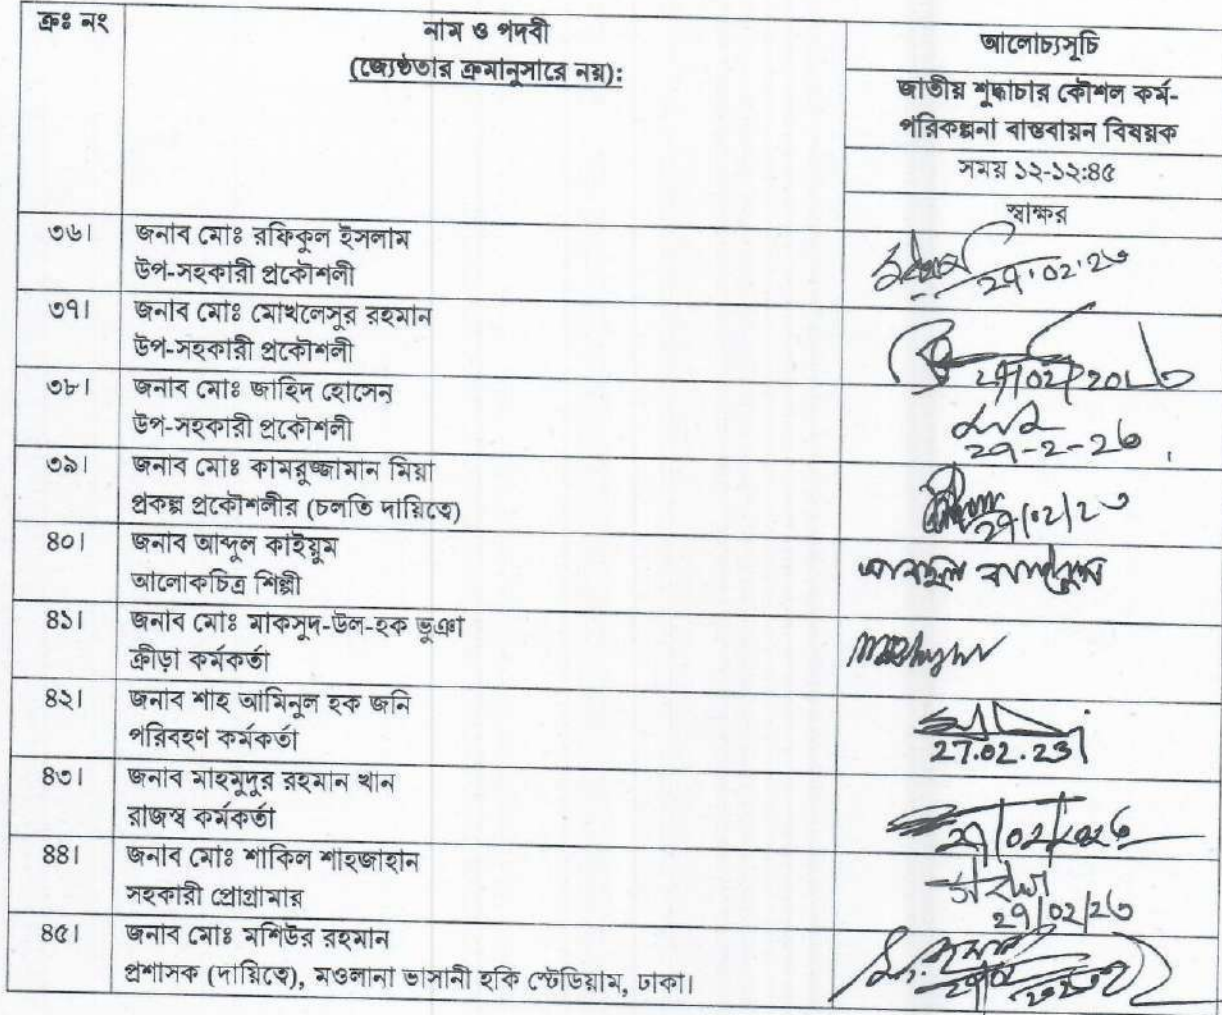 ক্রঃ নং
নাম ও পদবী
(জ্যেষ্ঠতার ক্রমানুসারে নয়):
আলোচ্যসূচি
জাতীয় শুদ্ধাচার কৌশল কর্ম-
পরিকল্পনা বাস্তবায়ন বিষয়ক
সময় ১২-১২:৪৫
স্বাক্ষর
৩৬।
জনাব মোঃ রফিকুল ইসলাম
উপ-সহকারী প্রকৌশলী
২৭.০২.২৩
৩৭।
জনাব মোঃ মোখলেসুর রহমান
উপ-সহকারী প্রকৌশলী
২৭/০২/২০২৩
৩৮।
জনাব মোঃ জাহিদ হোসেন
উপ-সহকারী প্রকৌশলী
২৭-২-২৩
৩৯।
জনাব মোঃ কামরুজ্জামান মিয়া
প্রকল্প প্রকৌশলীর (চলতি দায়িত্বে)
২৭/০২/২৩
৪০।
জনাব আব্দুল কাইয়ুম
আলোকচিত্র শিল্পী
৪১।
জনাব মোঃ মাকসুদ-উল-হক ভুঞা
ক্রীড়া কর্মকর্তা
৪২।
জনাব শাহ আমিনুল হক জনি
পরিবহণ কর্মকর্তা
27.02.23
৪৩।
জনাব মাহমুদুর রহমান খান
রাজস্ব কর্মকর্তা
২৭/০২/২০২৩
৪৪।
জনাব মোঃ শাকিল শাহজাহান
সহকারী প্রোগ্রামার
২৭/০২/২৩
৪৫।
জনাব মোঃ মশিউর রহমান
প্রশাসক (দায়িত্বে), মওলানা ভাসানী হকি স্টেডিয়াম, ঢাকা।